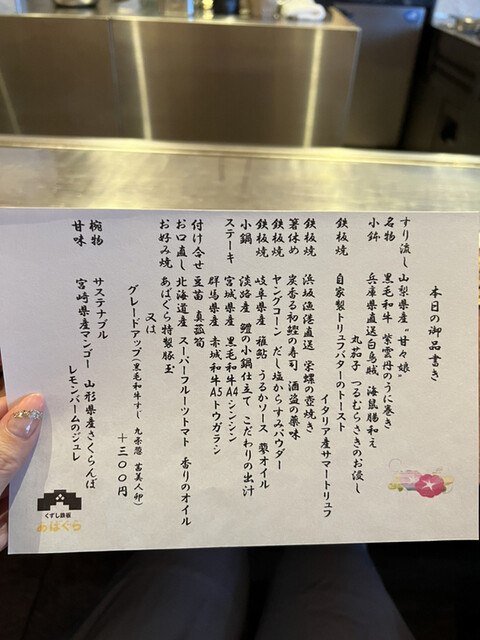 本日の御品書き
すり流し 山梨県産“甘々娘”
名物 黒毛和牛 紫雲丹のうに巻き
小鉢 兵庫県直送白烏賊 海鼠腸和え
丸茄子 つるむらさきのお浸し
鉄板焼 自家製トリュフバターのトースト
イタリア産サマートリュフ
鉄板焼 浜坂漁港直送 栄螺の壺焼き
箸休め 炭香る初鰹の寿司 酒盗の薬味
鉄板焼 ヤングコーン だし塩からすみパウダー
鉄板焼 岐阜県産 稚鮎 うるかソース 蓼オイル
小鍋 淡路産 鱧の小鍋仕立て こだわりの出汁
ステーキ 宮城県産 黒毛和牛A4シンシン
群馬県産 赤城和牛A5トウガラシ
付け合せ 豆苗 真菰筍
お口直し 北海道産 スーパーフルーツトマト 香りのオイル
お好み焼 あばぐら特製豚玉
又は
グレードアップ(黒毛和牛すじ 九条葱 蕾美人卵)
+300円
椀物 サステナブル
甘味 宮崎県産マンゴー 山形県産さくらんぼ
レモンバームのジュレ
くずし鉄板
あばぐら